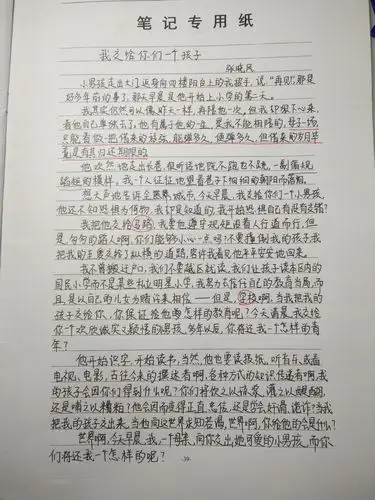 笔记专用纸
我交给你们一个孩子
张晓风
小男孩走出大门,返身向四楼阳台上的我招手,说:"再见!"那是
好多年前的事了,那天早晨是他开始上小学的第二天。
我其实仍然可以像昨天一样,再陪他一次,但我却狠下心来,
看他自己单独去了。他有属于他的一生,是我不能相陪的,母子一场,
只能看做一把借来的琴弦,能弹多久,便弹多久,但借来的岁月毕
竟是有其归还期限的。
他欢然地走出长巷,很听话地既不跑也不跳,一副循规
蹈矩的模样。我一个人怔怔地望着巷子下细细的朝阳而落泪。
想大声地告诉全城市,今天早晨,我交给你们一个小男孩,
他还不知恐惧为何物,我却是知道的,我开始恐惧自己有没有交错?
我把他交给马路,我要他遵守规矩沿着人行道而行,但
是,匆匆的路人啊,你们能够小心一点吗?不要撞倒我的孩子,我
把我的至爱交给了纵横的道路,容许我看见他平平安安地回来。
我不曾搬迁户口,我们不要越区就读,我们让孩子读本区内的
国民小学而不是某些私立明星小学,我努力去信任自己的教育当局,而
且,是以自己的儿女为赌注来相信——但是,学校啊,当我把我的
孩子交给你,你保证给他怎样的教育?今天清晨,我交给
你一个欢欣诚实又颖悟的小男孩,多年以后,你将还我一个怎样的青
年?
他开始识字,开始读书,当然,他也要读报纸、听音乐或看
电视、电影,古往今来的撰述者啊,各种方式的知识传递者啊,我
的孩子会因你们得到什么呢?你们将饮之以琼浆,灌之以醍醐,
还是哺之以糟粕?他会因而变得正直、忠信,还是学会奸猾、诡诈?当我把
我的孩子交出来,当他向这世界求知若渴,世界啊,你给他的会是什么?
世界啊,今天早晨,我,一个母亲,向你交出她可爱的小男孩,而你
们将还我一个怎样的呢?
-39-